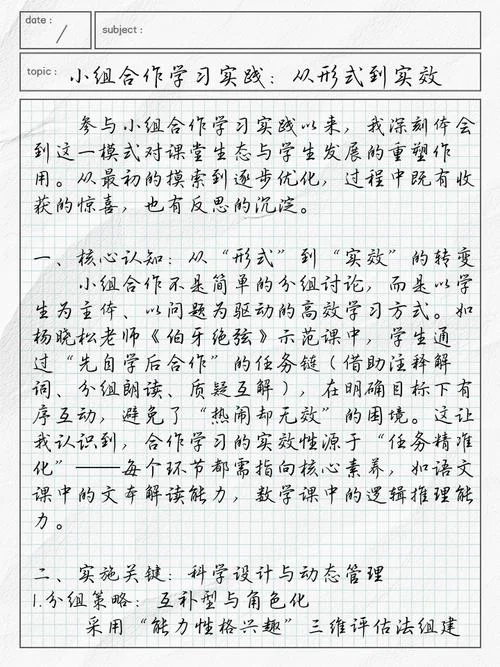 date :
/
subject :
topic : 小组合作学习实践：从形式到实效
参与小组合作学习实践以来，我深刻体会
到这一模式对课堂生态与学生发展的重塑作
用。从最初的摸索到逐步优化，过程中既有收
获的惊喜，也有反思的沉淀。
一、核心认知：从“形式”到“实效”的转变
小组合作不是简单的分组讨论，而是以学
生为主体、以问题为驱动的高效学习方式。如
杨晓松老师《伯牙绝弦》示范课中，学生通
过“先自学后合作”的任务链（借助注释解
词、分组朗读、质疑互解），在明确目标下有
序互动，避免了“热闹却无效”的困境。这让
我认识到，合作学习的实效性源于“任务精准
化”——每个环节都需指向核心素养，如语文
课中的文本解读能力，数学课中的逻辑推理能
力。
二、实施关键：科学设计与动态管理
1.分组策略：互补型与角色化
采用“能力性格兴趣”三维评估法组建